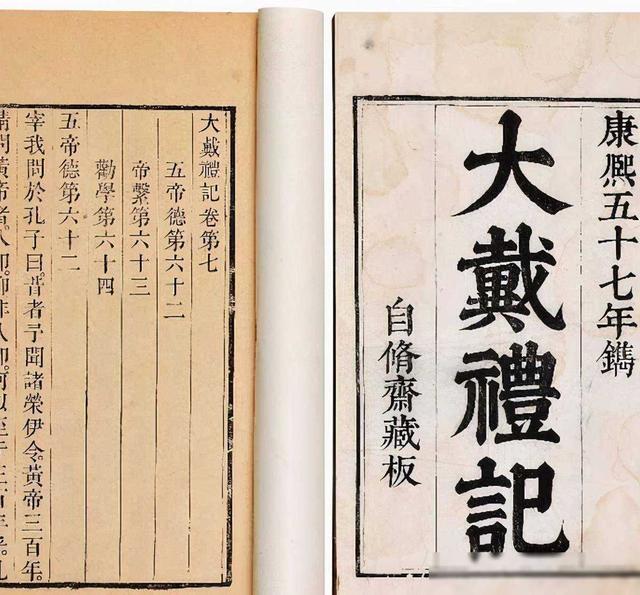 康熙五十七年鐫
大戴禮記
自脩齋藏板
大戴禮記卷第七
五帝德第六十二
帝繫第六十三
勸學第六十四
五帝德第六十二
宰我問於孔子曰。昔者予聞諸榮伊令。黃帝三百年。
請問黃帝者。人